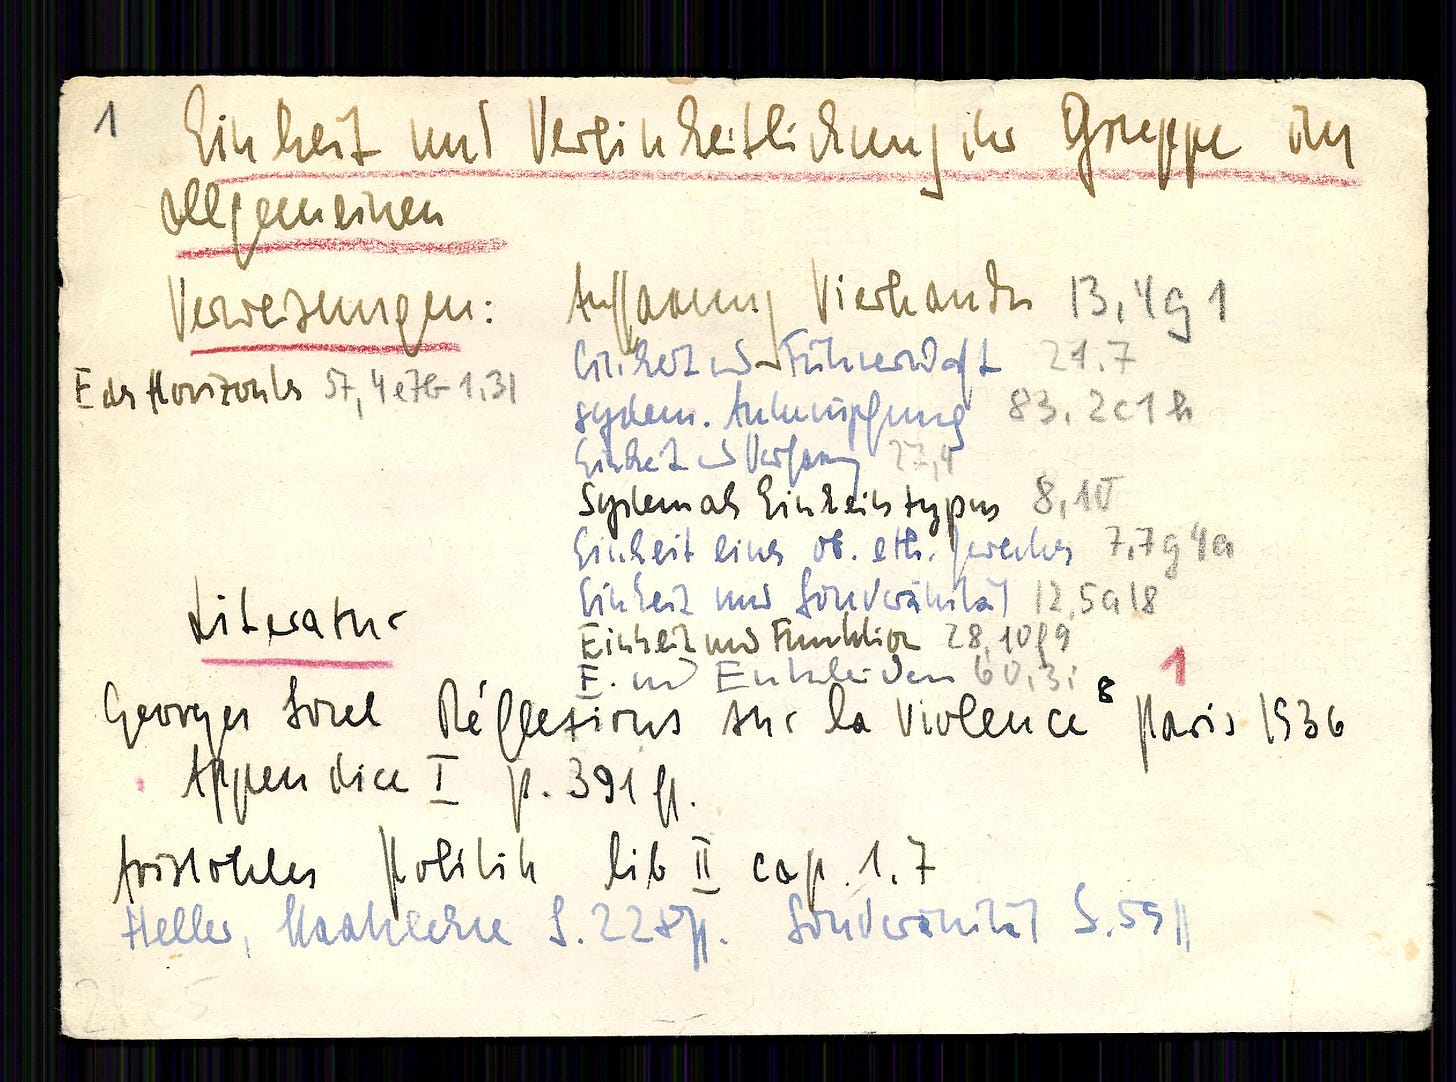 1 Einheit und Vereinheitlichung der Gruppe im
allgemeinen
Verweisungen:
E des Horizontes 57,4e7b1,31
Auffassung Vierkandts 13,4g1
Einheit und Führerschaft 21.7
system. Anknüpfung 83.2c1h
Einheit und Verfassung 27,4
System als Einheitstypus 8,1
Einheit eines ob. eth. Zweckes 7,7g4a
Einheit und Souveränität 12,5a18
Einheit und Funktion 28,10f9
E. und Entscheiden 60,3i
1
Literatur
Georges Sorel Réflexions sur la violence 8 Paris 1936
Appendice I p. 391 ff.
Aristoteles Politik lib II cap. 1.7
Heller, Staatslehre S. 228 ff. Souveränität S. 59 ff